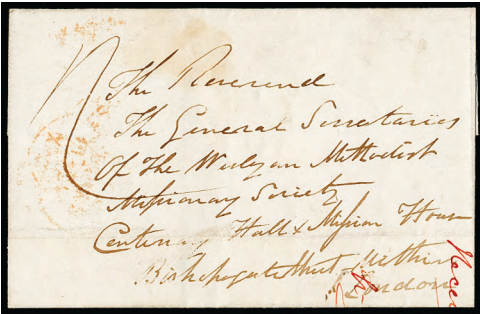 The Reverend
The General Secretaries
Of The Wesleyan Methodist
Missionary Society
Centenary Hall & Mission House
Bishopsgate Street Within
London